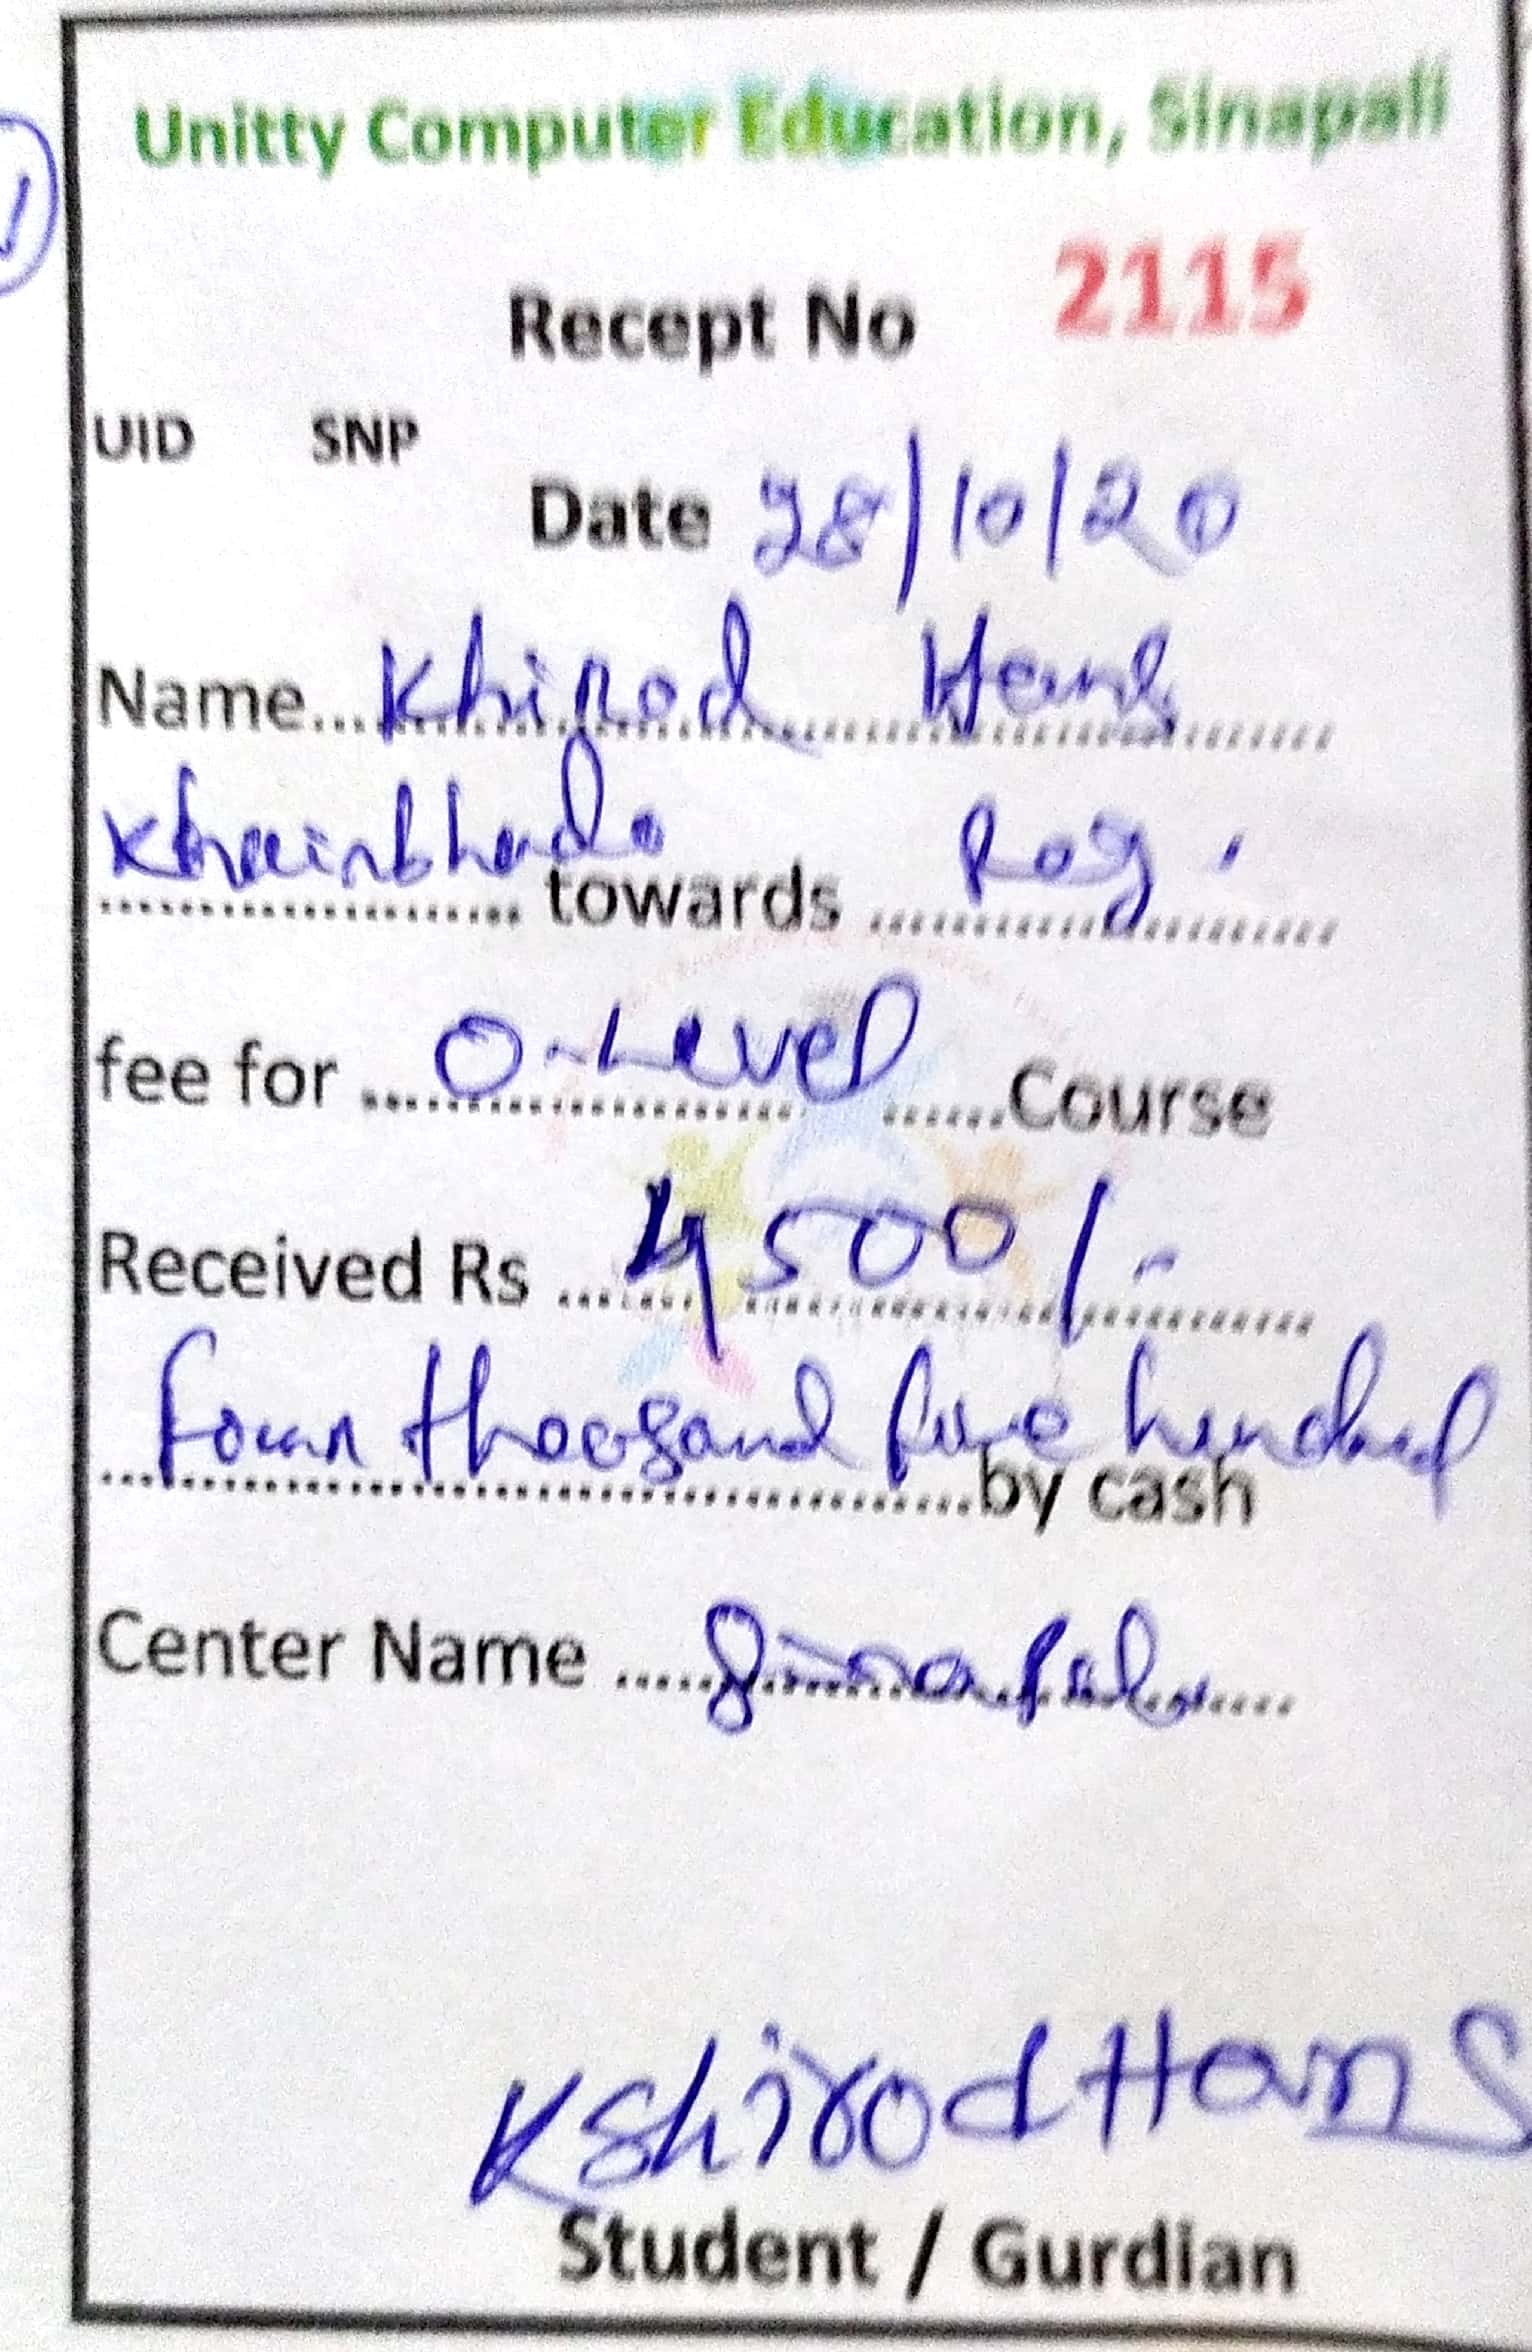 Unitty Computer Education, Sinapali
1
Recept No 2115
UID SNP
Date 28/10/20
Name... Khirod Hans
Khairbhadi towards Reg.
fee for O-Level Course
Received Rs 4500/-
Four thousand five hundred
by cash
Center Name Sinapali
Kshirod Hans
Student / Gurdian